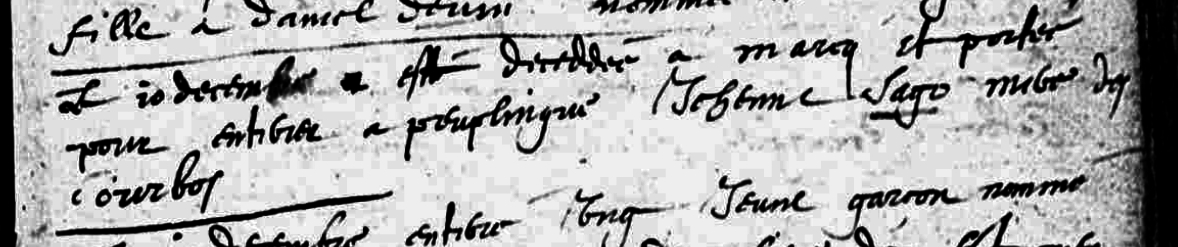 fille a daniel nommé
Le 10 decembre est deceddée a marcq et portée
pour entirer a peuplingue Jehenne Lago mere des
courbos
decembre entiere Ung Jeune garcon nomme